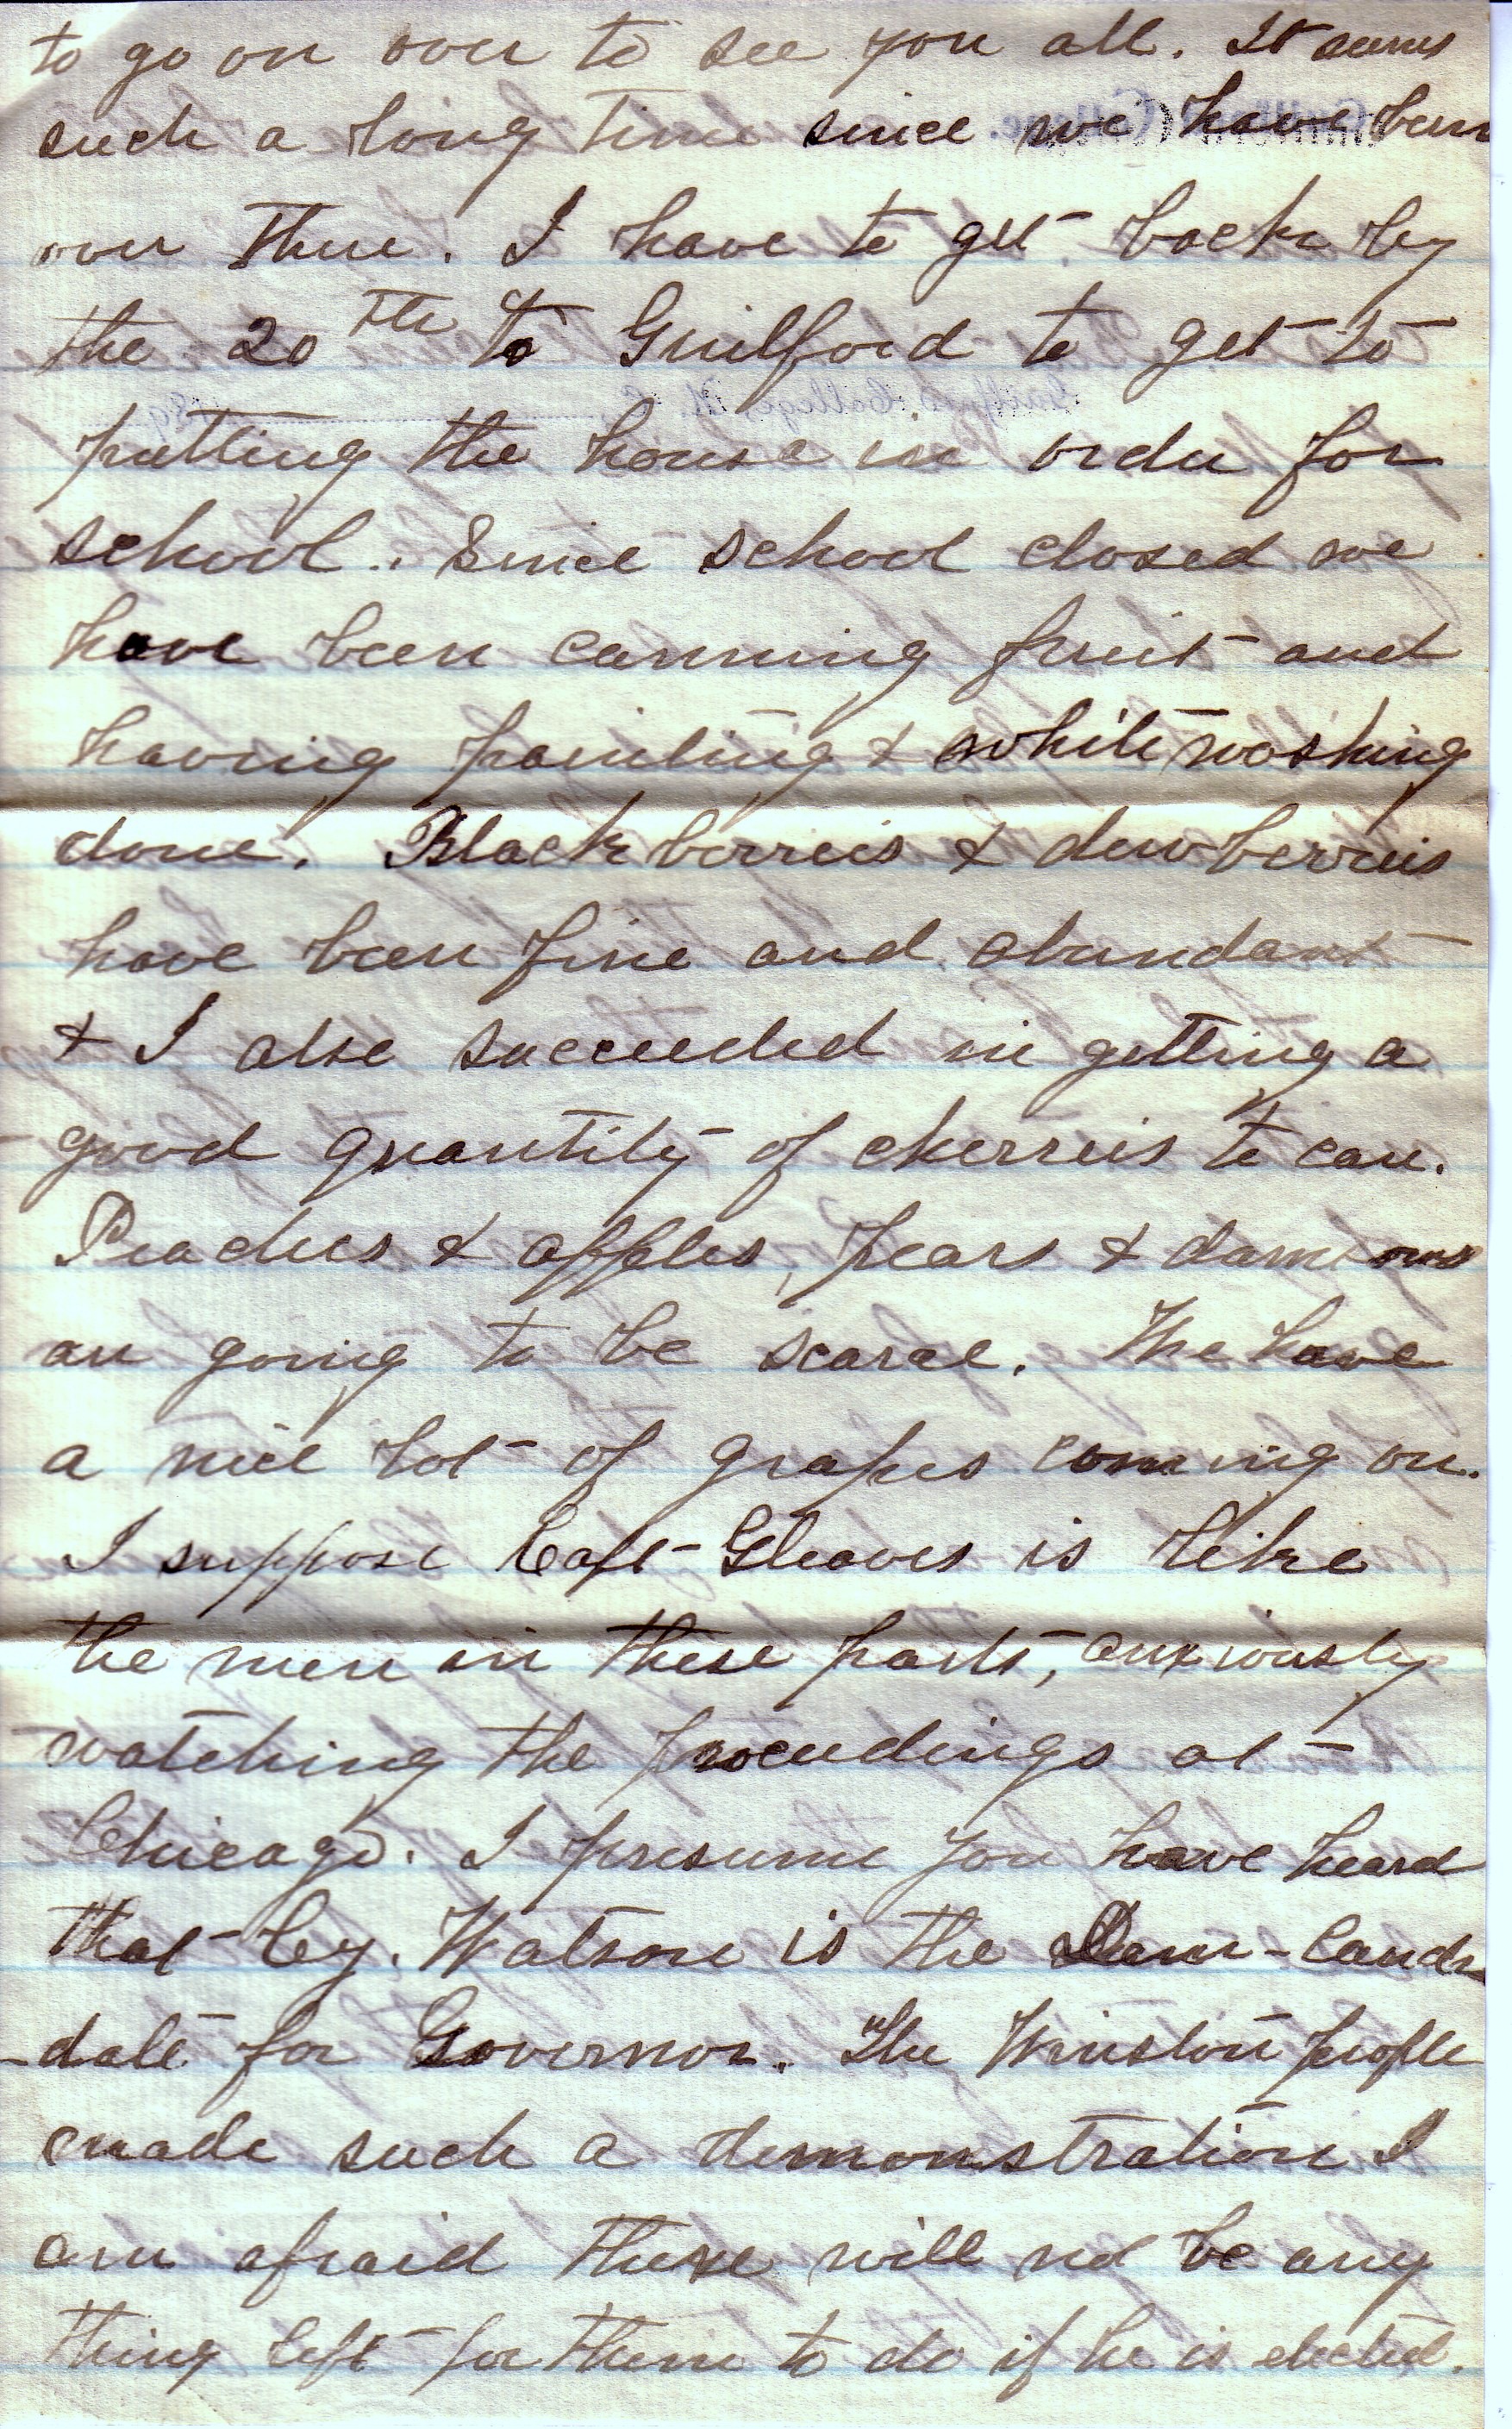 to go on over to see you all. It seems
such a long time since we have been
over there. I have to get back by
the 20th to Guilford to get to
putting the house in order for
school. Since school closed we
have been canning fruit and
having painting & white washing
done. Blackberries & dewberries
have been fine and abundant
& I also succeeded in getting a
good quantity of cherries to can.
Peaches & apples, pears & damsons
are going to be scarce. We have
a nice lot of grapes coming on.
I suppose Capt Gleaves is like
the men in these parts, anxiously
watching the proceedings at
Chicago. I presume you have heard
that Cy. Watson is the Dem- Candi-
-date for Governor. The Winston people
made such a demonstration I
am afraid there will not be any
thing left for them to do if he is elected.